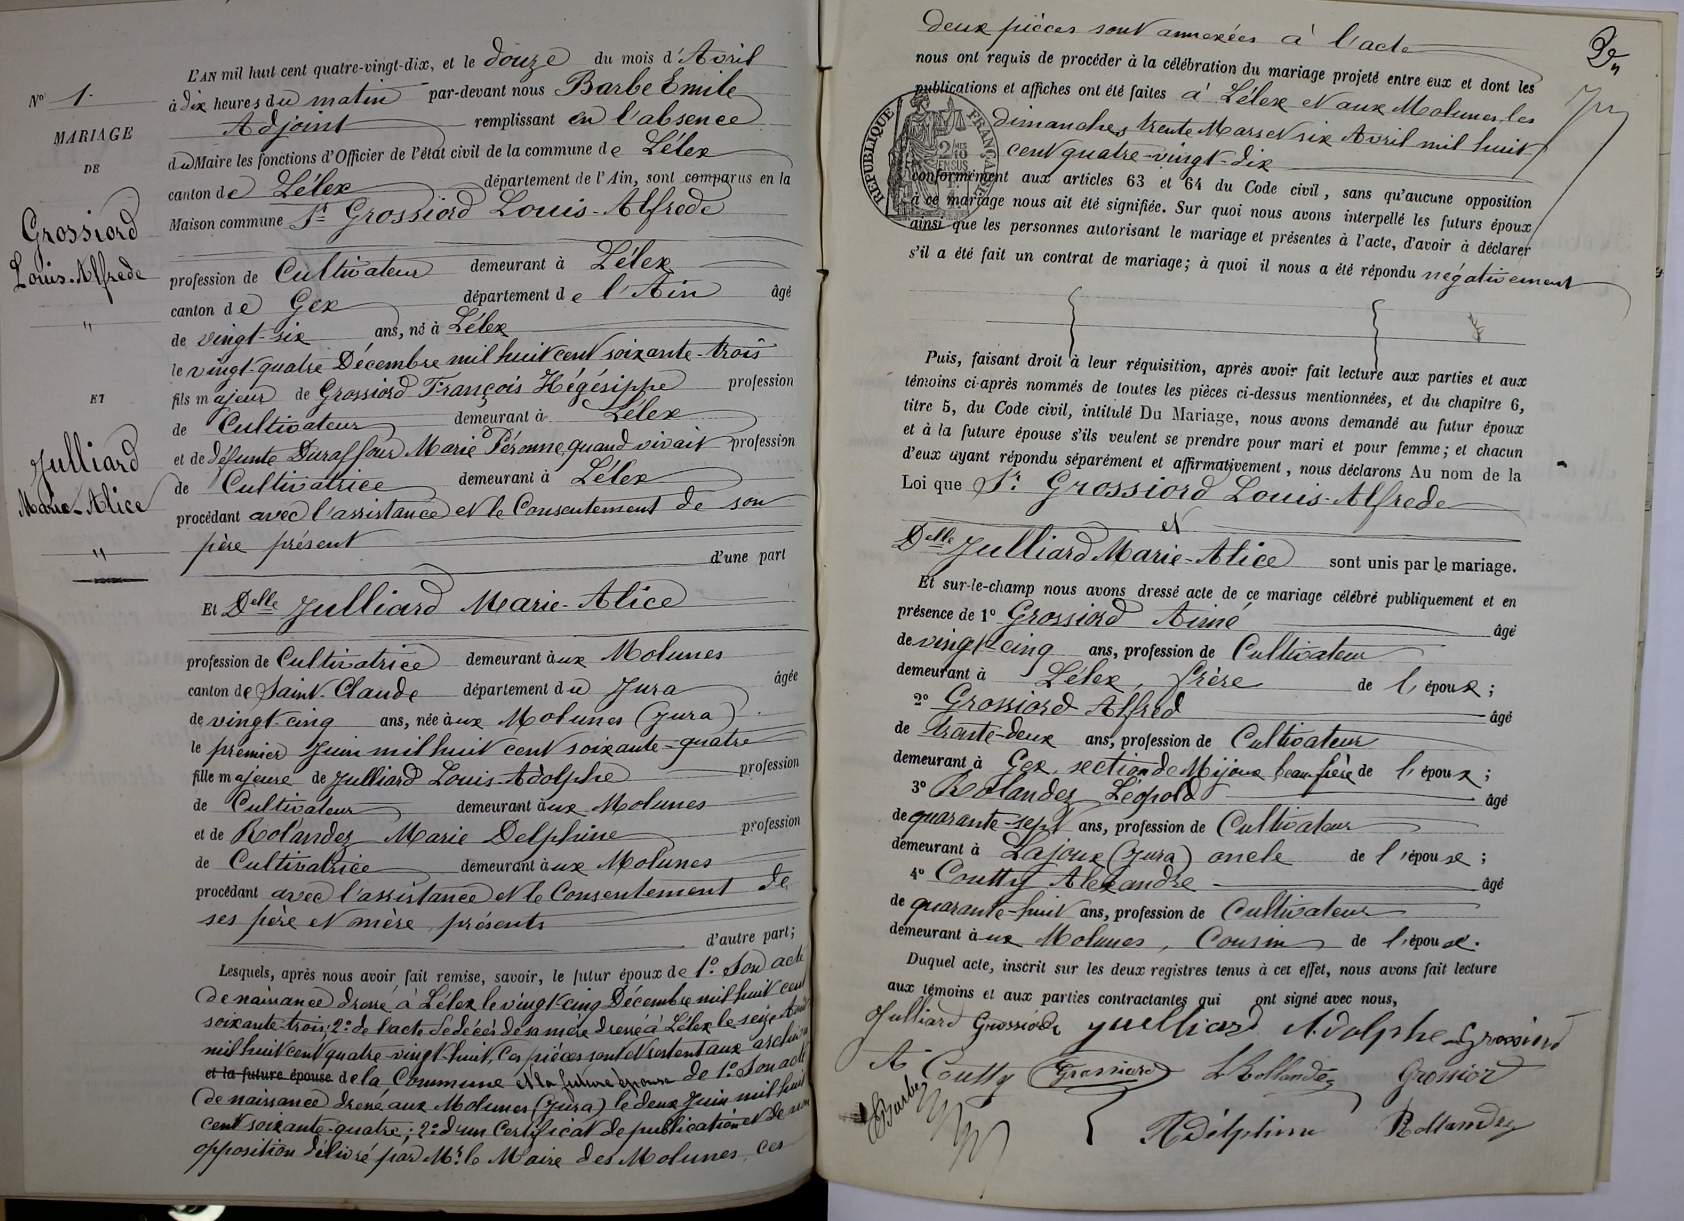 L'AN mil huit cent quatre-vingt-dix, et le douze du mois d'Avril
N° 1.
à dix heures du matin par-devant nous Barbe Emile
MARIAGE
Adjoint remplissant en l'absence
DE
du Maire les fonctions d'Officier de l'état civil de la commune de Lélex
canton de Lélex département de l'Ain, sont comparus en la
Maison commune Sr. Grossiord Louis-Alfrede
Grossiord
Louis-Alfrede
"
profession de Cultivateur demeurant à Lélex
canton de Gex département de l'Ain âgé
de vingt-six ans, né à Lélex
le vingt-quatre Décembre mil huit cent soixante-trois
fils majeur de Grossiord François Hégésippe profession
ET
de Cultivateur demeurant à Lélex
et de défunte Duraffour Marie Péronne, quand vivait profession
Julliard
Marie-Alice
"
de Cultivatrice demeurant à Lélex
procédant avec l'assistance et le Consentement de son
père présent
d'une part
Et Delle Julliard Marie-Alice
profession de Cultivatrice demeurant aux Molunes
canton de Saint-Claude département du Jura âgée
de vingt cinq ans, née aux Molunes (Jura)
le premier Juin mil huit cent soixante-quatre
fille majeure de Julliard Louis-Adolphe profession
de Cultivateur demeurant aux Molunes
et de Rolandez Marie Delphine profession
de Cultivatrice demeurant aux Molunes
procédant avec l'assistance et le Consentement de
ses père et mère présents
d'autre part;
Lesquels, après nous avoir fait remise, savoir, le futur époux de 1°. Son acte
de naissance dressé à Lélex le vingt cinq Décembre mil huit cent
soixante-trois; 2°. de l'acte de décès de sa mère dressé à Lélex le seize Août
mil huit cent quatre-vingt-huit, Ces pièces sont et restent aux archives
et la future épouse de la Commune et la future épouse de 1°. Son acte
de naissance dressé aux Molunes (Jura) le deux Juin mil huit
cent soixante-quatre; 2°. d'un Certificat de publication et de non
opposition délivré par Mr. le Maire des Molunes, ces
deux pièces sont annexées à l'acte
nous ont requis de procéder à la célébration du mariage projeté entre eux et dont les
publications et affiches ont été faites à Lélex et aux Molunes, les
dimanches trente Mars et six Avril mil huit
cent quatre-vingt-dix
RÉPUBLIQUE FRANÇAISE
conformément aux articles 63 et 64 du Code civil, sans qu'aucune opposition
à ce mariage nous ait été signifiée. Sur quoi nous avons interpellé les futurs époux
ainsi que les personnes autorisant le mariage et présentes à l'acte, d'avoir à déclarer
s'il a été fait un contrat de mariage; à quoi il nous a été répondu négativement
Puis, faisant droit à leur réquisition, après avoir fait lecture aux parties et aux
témoins ci-après nommés de toutes les pièces ci-dessus mentionnées, et du chapitre 6,
titre 5, du Code civil, intitulé Du Mariage, nous avons demandé au futur époux
et à la future épouse s'ils veulent se prendre pour mari et pour femme; et chacun
d'eux ayant répondu séparément et affirmativement, nous déclarons Au nom de la
Loi que Sr. Grossiord Louis-Alfrede
et
Delle Julliard Marie-Alice sont unis par le mariage.
Et sur-le-champ nous avons dressé acte de ce mariage célébré publiquement et en
présence de 1° Grossiord Aimé âgé
de vingt cinq ans, profession de Cultivateur
demeurant à Lélex, frère de l'époux;
2° Grossiord Alfred âgé
de trente-deux ans, profession de Cultivateur
demeurant à Gex, section de Mijoux, beau-frère de l'époux;
3° Rolandez Léopold âgé
de quarante-sept ans, profession de Cultivateur
demeurant à Lajoux (Jura) oncle de l'épouse;
4° Coutty Alexandre âgé
de quarante-huit ans, profession de Cultivateur
demeurant aux Molunes, Cousin de l'épouse.
Duquel acte, inscrit sur les deux registres tenus à cet effet, nous avons fait lecture
aux témoins et aux parties contractantes qui ont signé avec nous,
Julliard Grossiord Juilliard Adolphe Grossiord
A Coutty Grossiord L Rollandez Grossiord
EBarbe
Delphine Rollandez